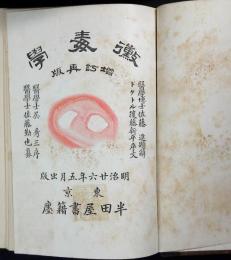 黴毒學
增訂再版
醫學博士佐藤進題辭
ドクトル後藤新平序文
醫學士吳秀三序
醫學士佐藤勤也纂
明治廿六年五月出版
東京
半田屋書籍